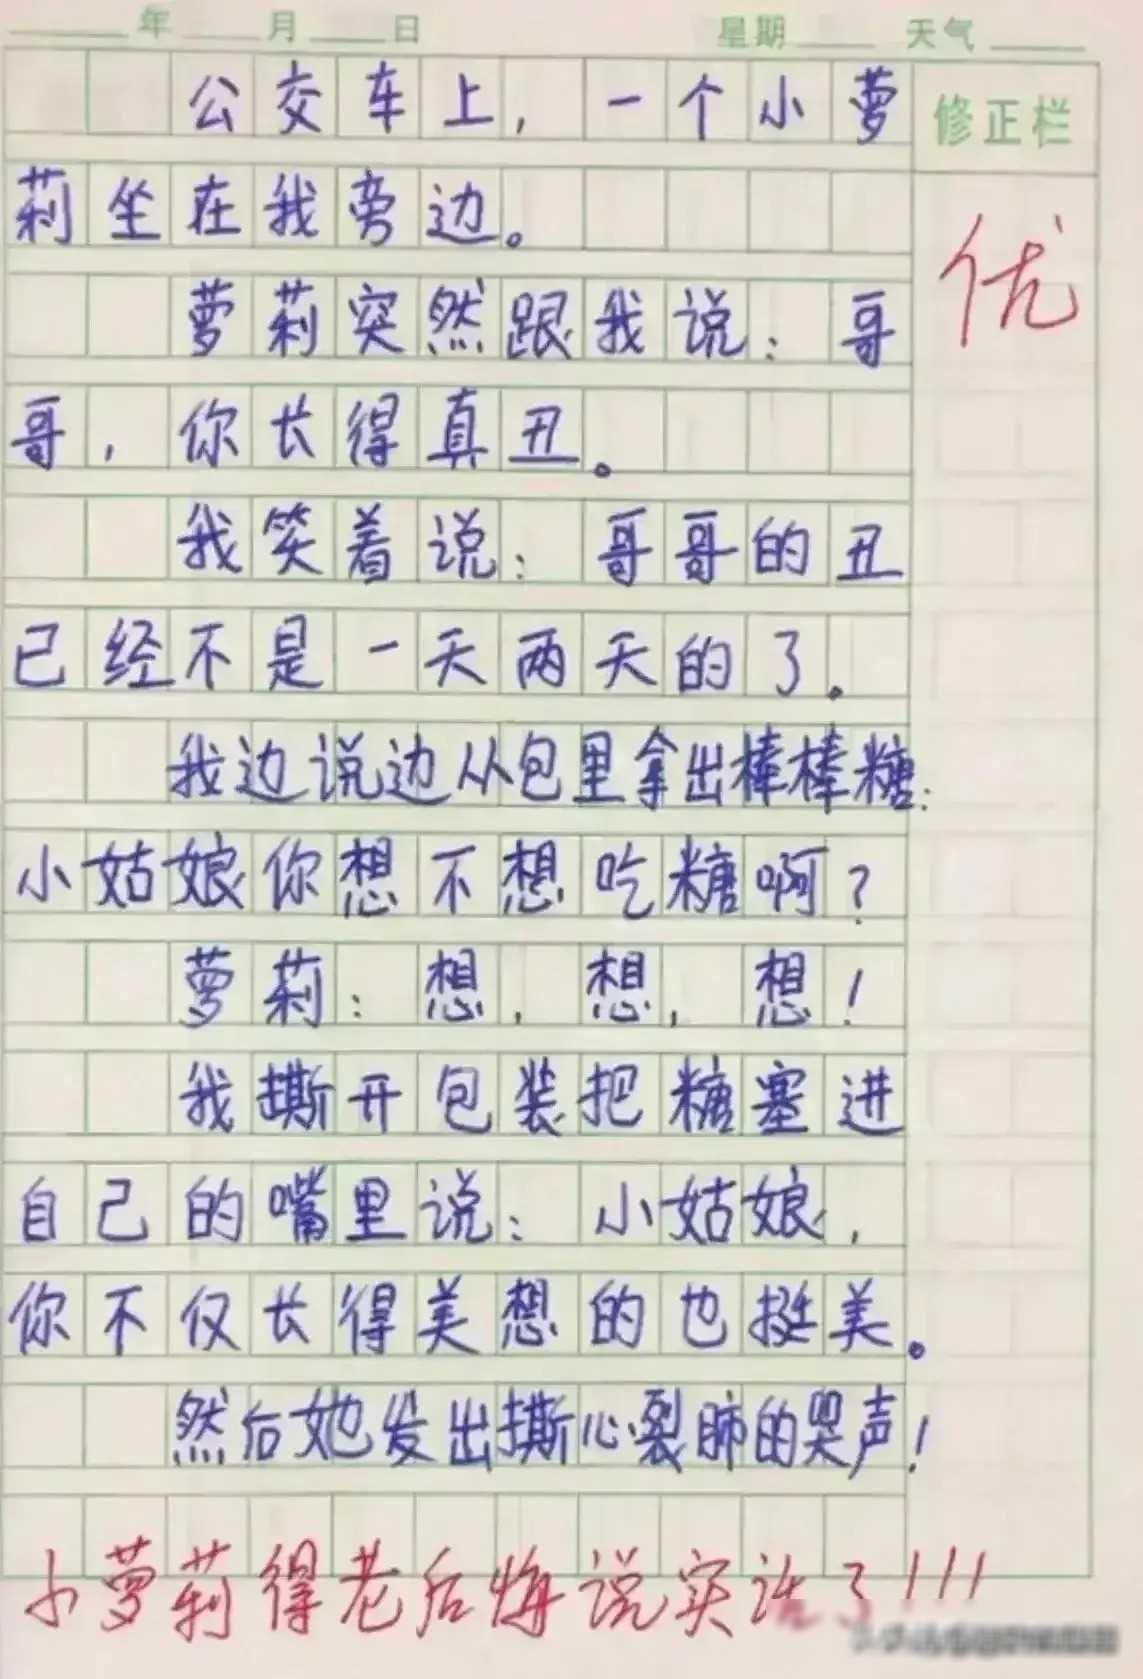 年 月 日 星期 天气
公交车上，一个小萝
修正栏
莉坐在我旁边。
优
萝莉突然跟我说：哥
哥，你长得真丑。
我笑着说：哥哥的丑
已经不是一天两天的了。
我边说边从包里拿出棒棒糖：
小姑娘你想不想吃糖啊？
萝莉：想，想，想！
我撕开包装把糖塞进
自己的嘴里说：小姑娘，
你不仅长得美想的也挺美。
然后她发出撕心裂肺的哭声！
小萝莉得老后悔说实话了!!!